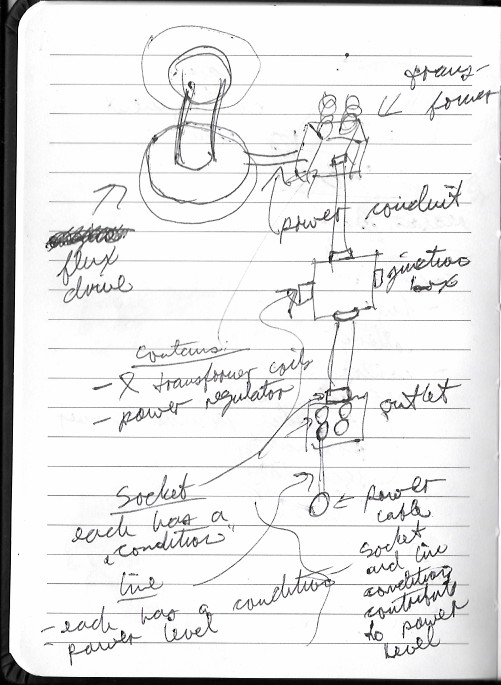 trans-
former
power conduit
flux
dome
junction
box
contains:
- X transformer coils
- power regulator
outlet
Socket
each has a
"condition"
power
cable
line
- each has a condition
- power level
socket
and line
condition
contribute
to power
level